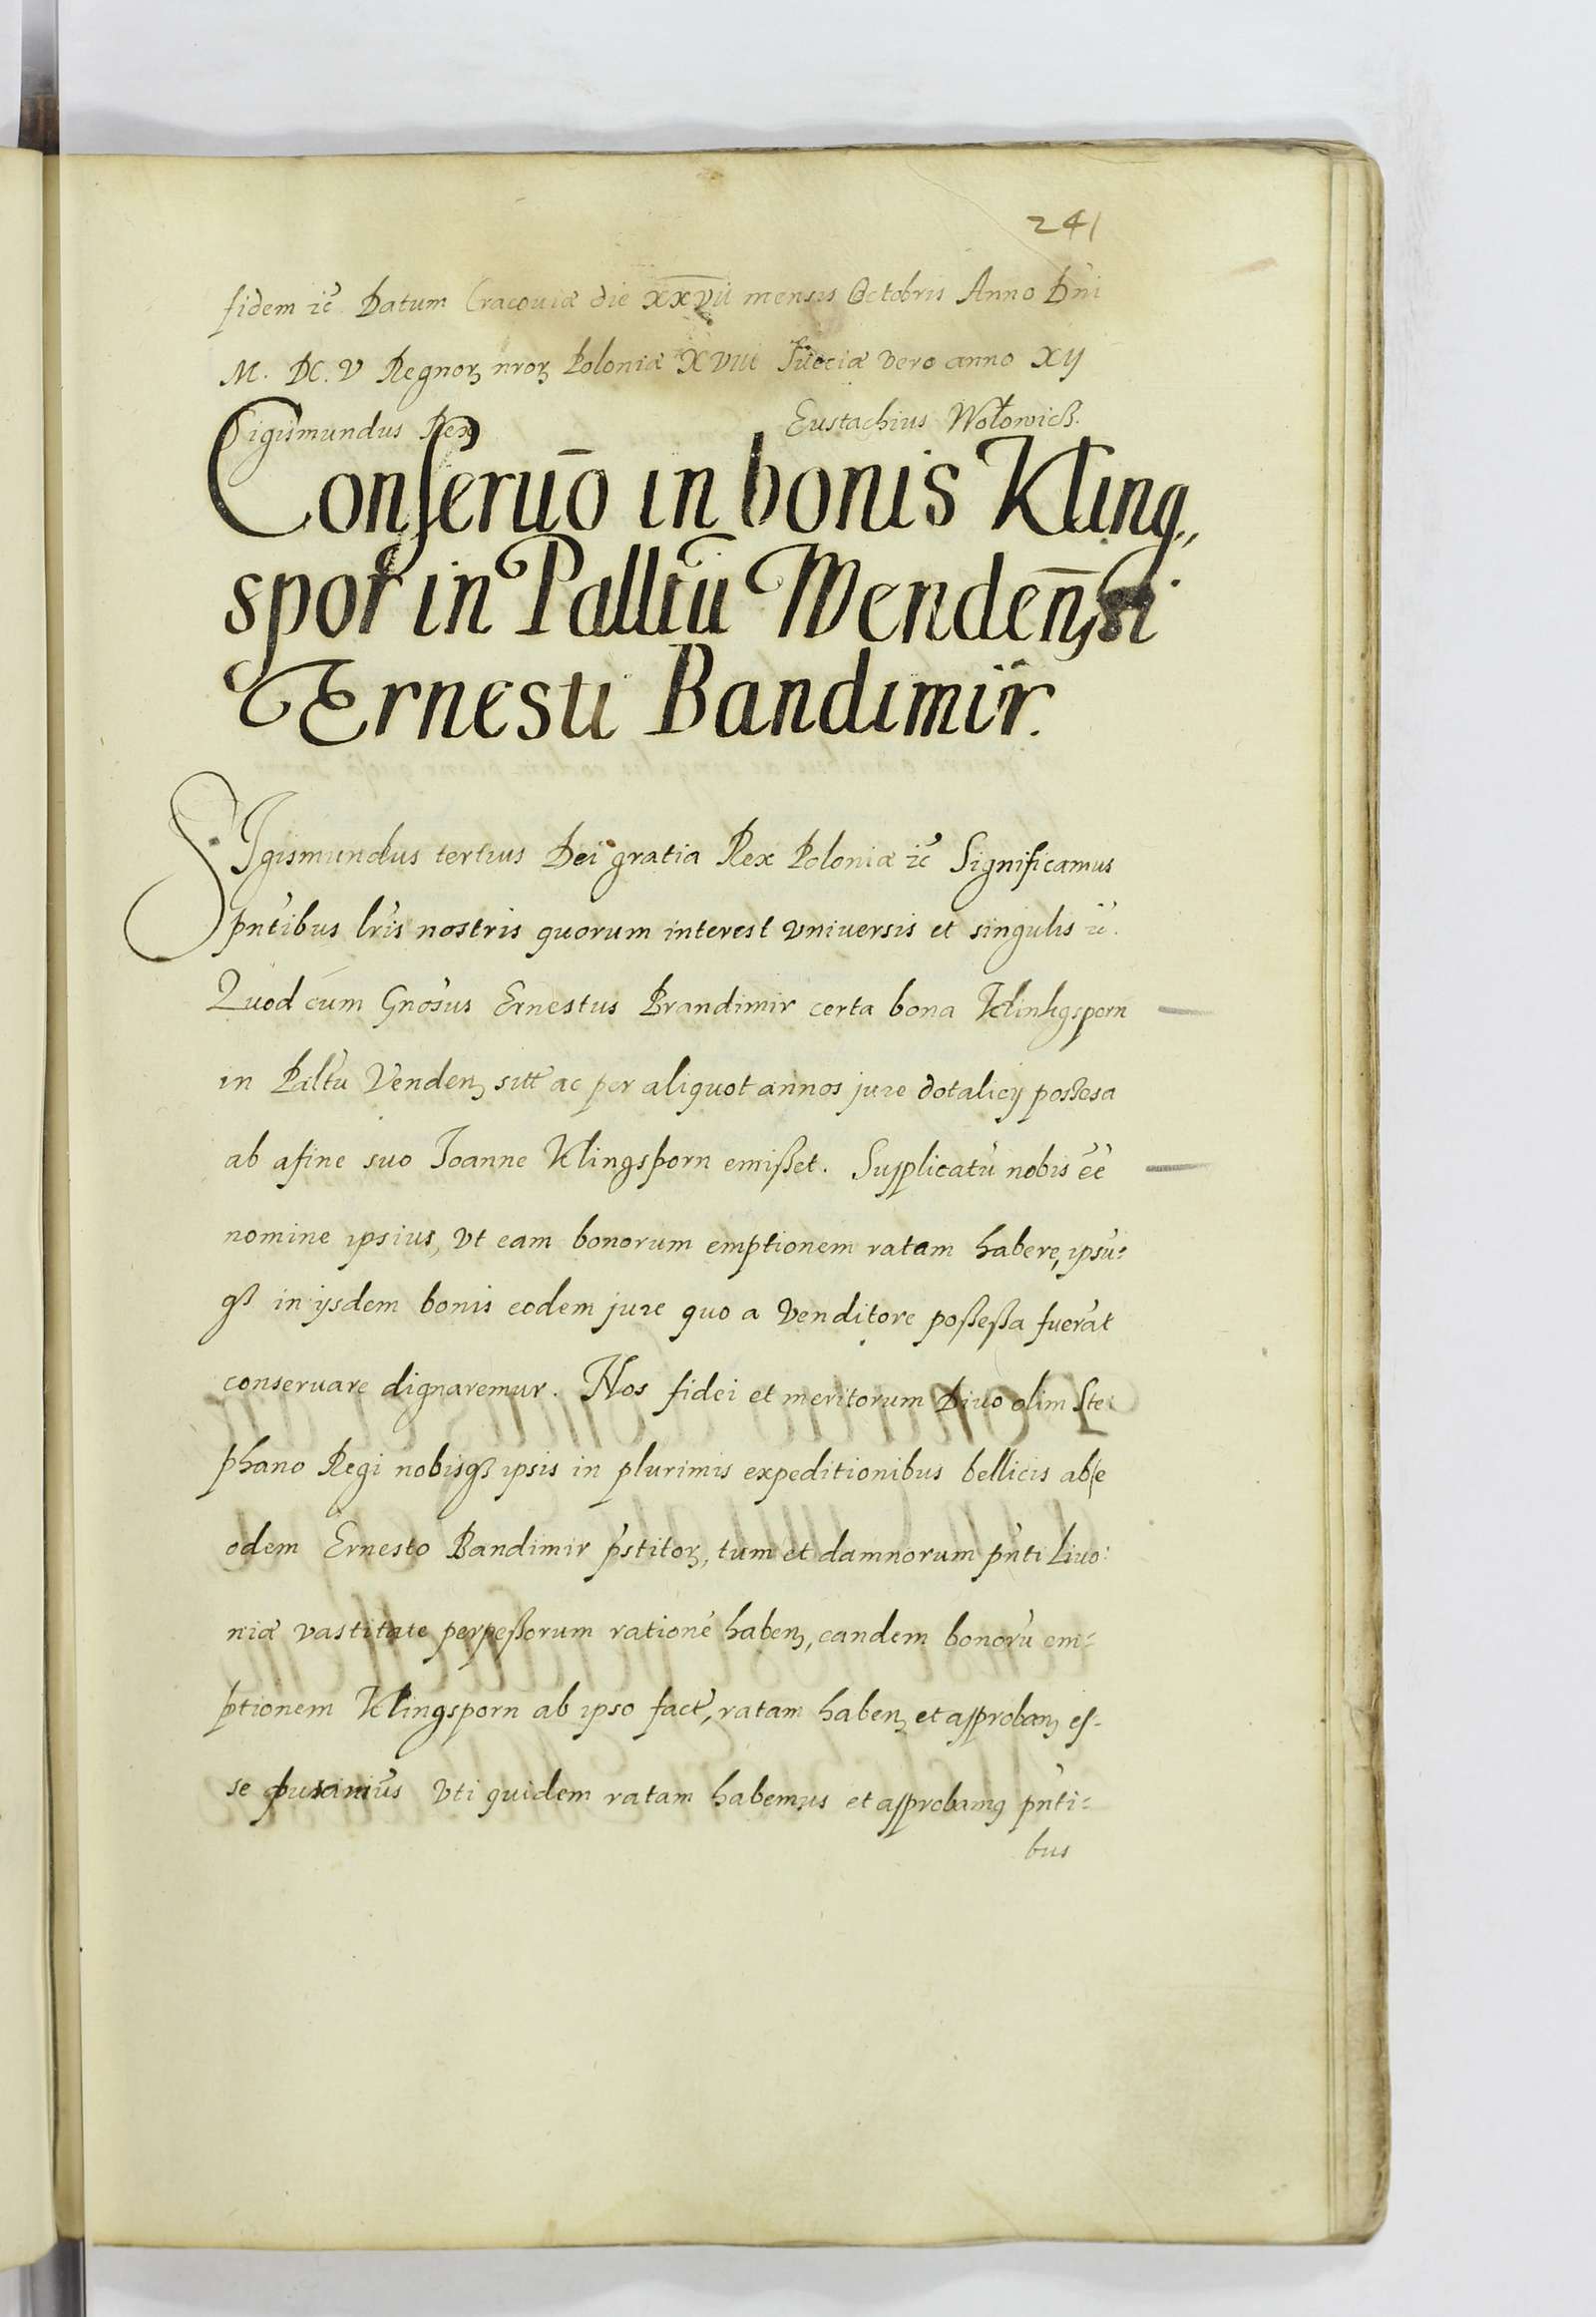 241
fidem ic̃ Datum Cracouiæ die XXVII mensis Octobris Anno Dñi
M. DC. V Regnoꝝ nr̃oꝝ Poloniæ XVIII Sueciæ vero anno XIJ
Sigismundus Rex Eustachius Wołowicß.
Conseruõ in bonis Kling,,
spor in Palltũ Wendeñ,si
Ernesti Bandimir.
SIgismundus tertius Dei gratia Rex Poloniæ ic̃ Significamus
pñtibus lr̃is nostris quorum interest vniuersis et singulis ic̃.
Quod cum Gnõsus Ernestus Brandimir certa bona Klinkgsporn
in Paltũ Venden, sitt̃ ac per aliquot annos jure dotalicij possesa
ab afine suo Joanne Klingsporn emißet. Supplicatũ nobis eẽ
nomine ipsius, vt eam bonorum emptionem ratam habere, ipsũ=
qȝ in ijsdem bonis eodem jure quo a venditore poßeßa fuerãt
conseruare dignaremur. Nos fidei et meritorum Diuo olim Ste:
phano Regi nobisqȝ ipsis in plurimis expeditionibus bellicis ab e
odem Ernesto Bandimir p̃stitoꝝ, tum et damnorum pñti Liuo:
niæ vastitate perpeßorum rationẽ haben, eandem bonorũ em=
ptionem Klingsporn ab ipso fact̃, ratam haben, et approban, es-
se vti quidem ratam habemus et approbamꝰ pñti=
bus